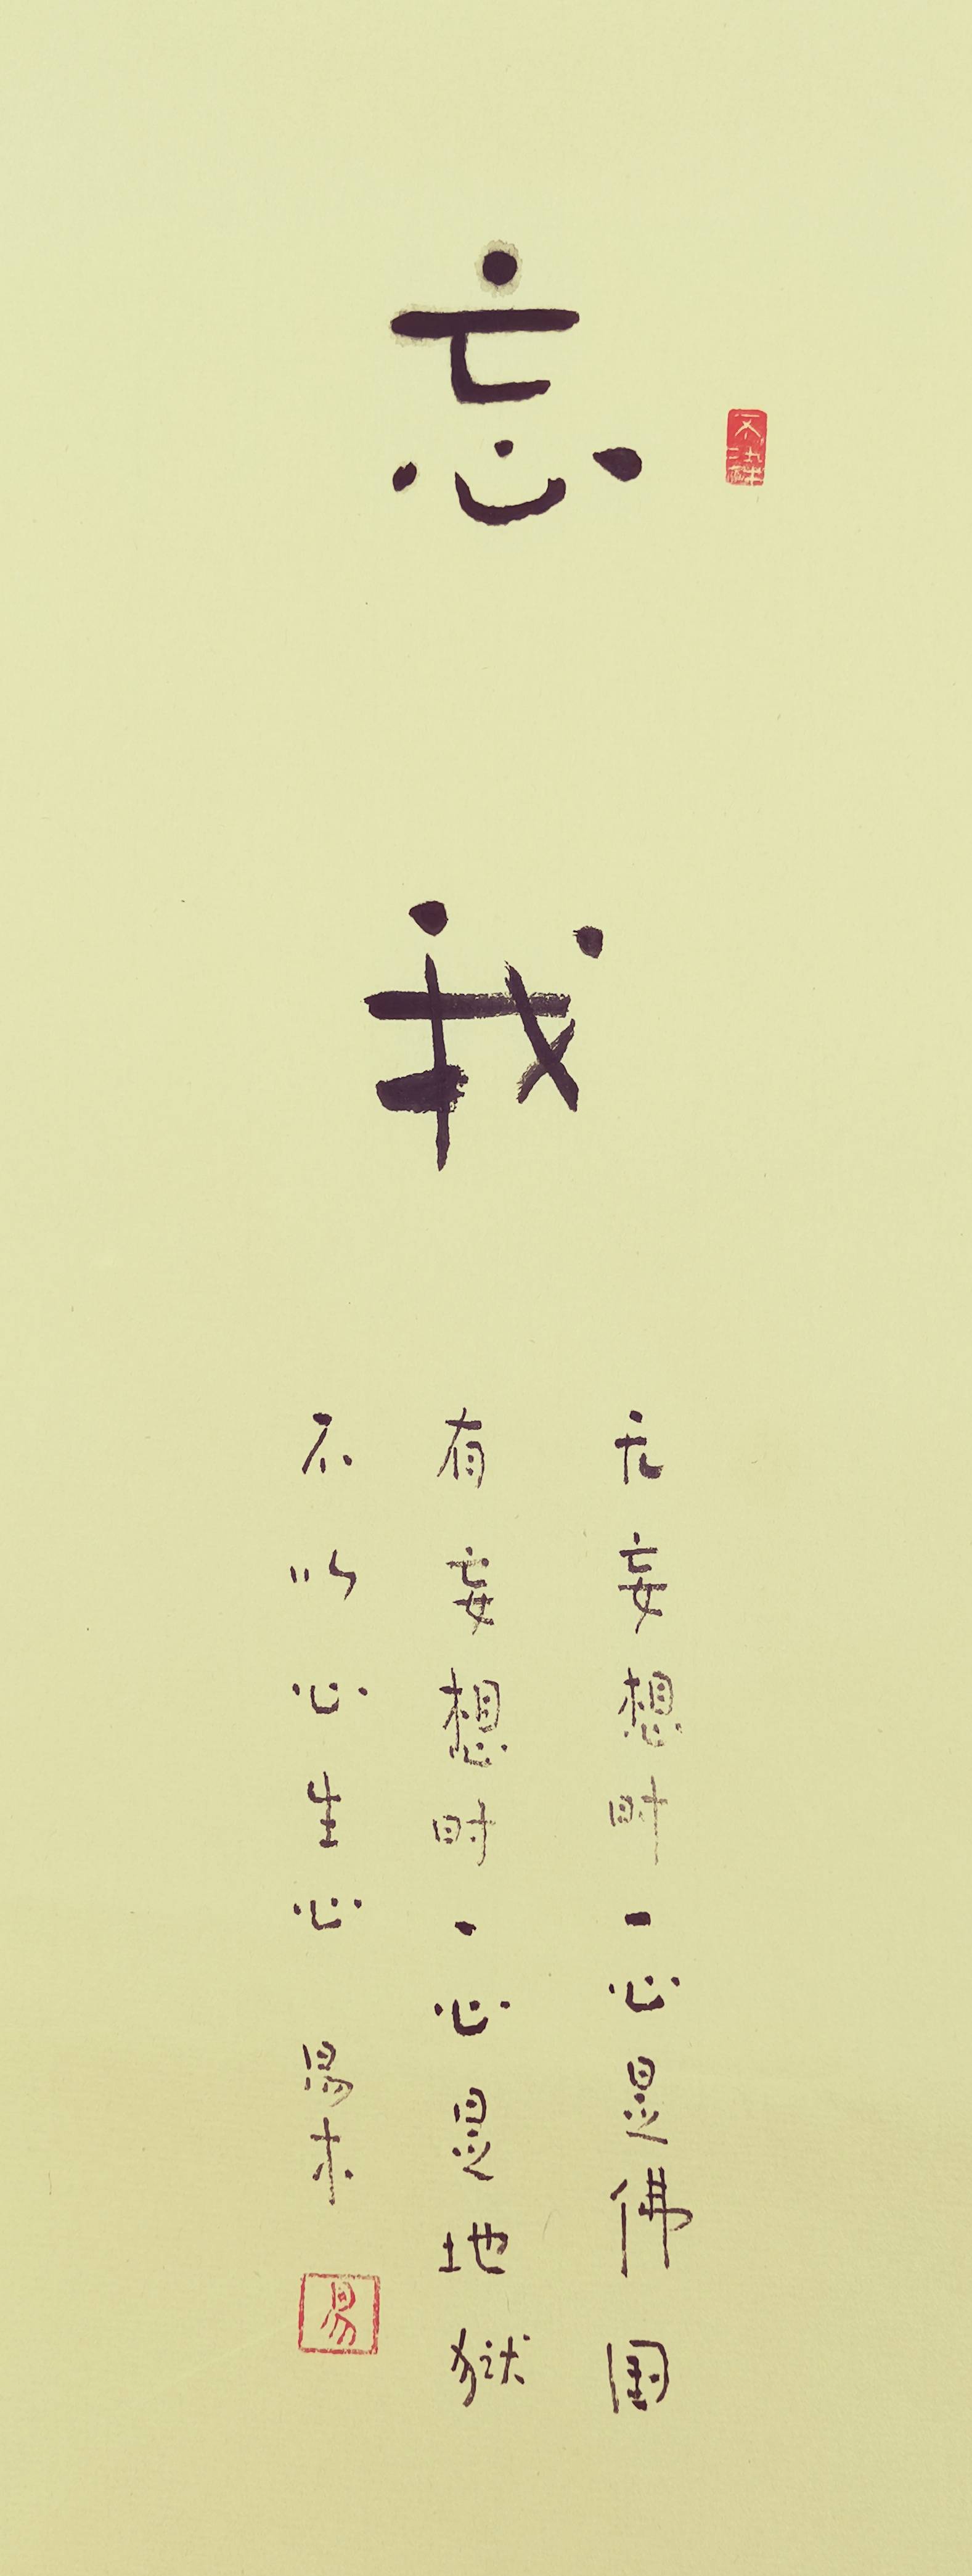 忘
我
不染
无妄想时一心是佛国
有妄想时一心是地狱
不以心生心 易来
易